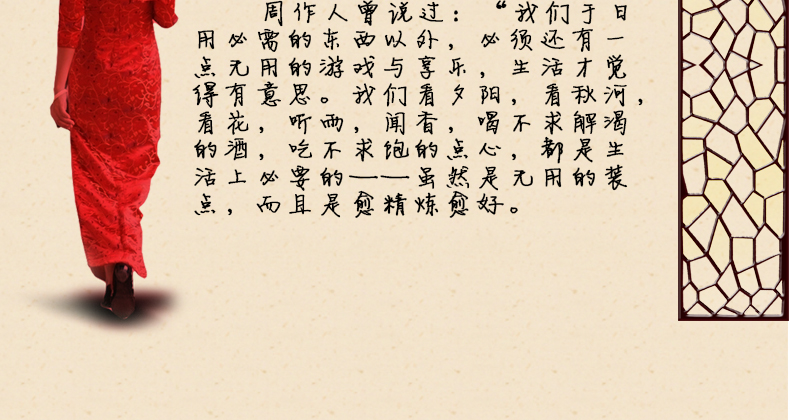 周作人曾说过：“我们于日
用必需的东西以外，必须还有一
点无用的游戏与享乐，生活才觉
得有意思。我们看夕阳，看秋河，
看花，听雨，闻香，喝不求解渴
的酒，吃不求饱的点心，都是生
活上必要的——虽然是无用的装
点，而且是愈精炼愈好。